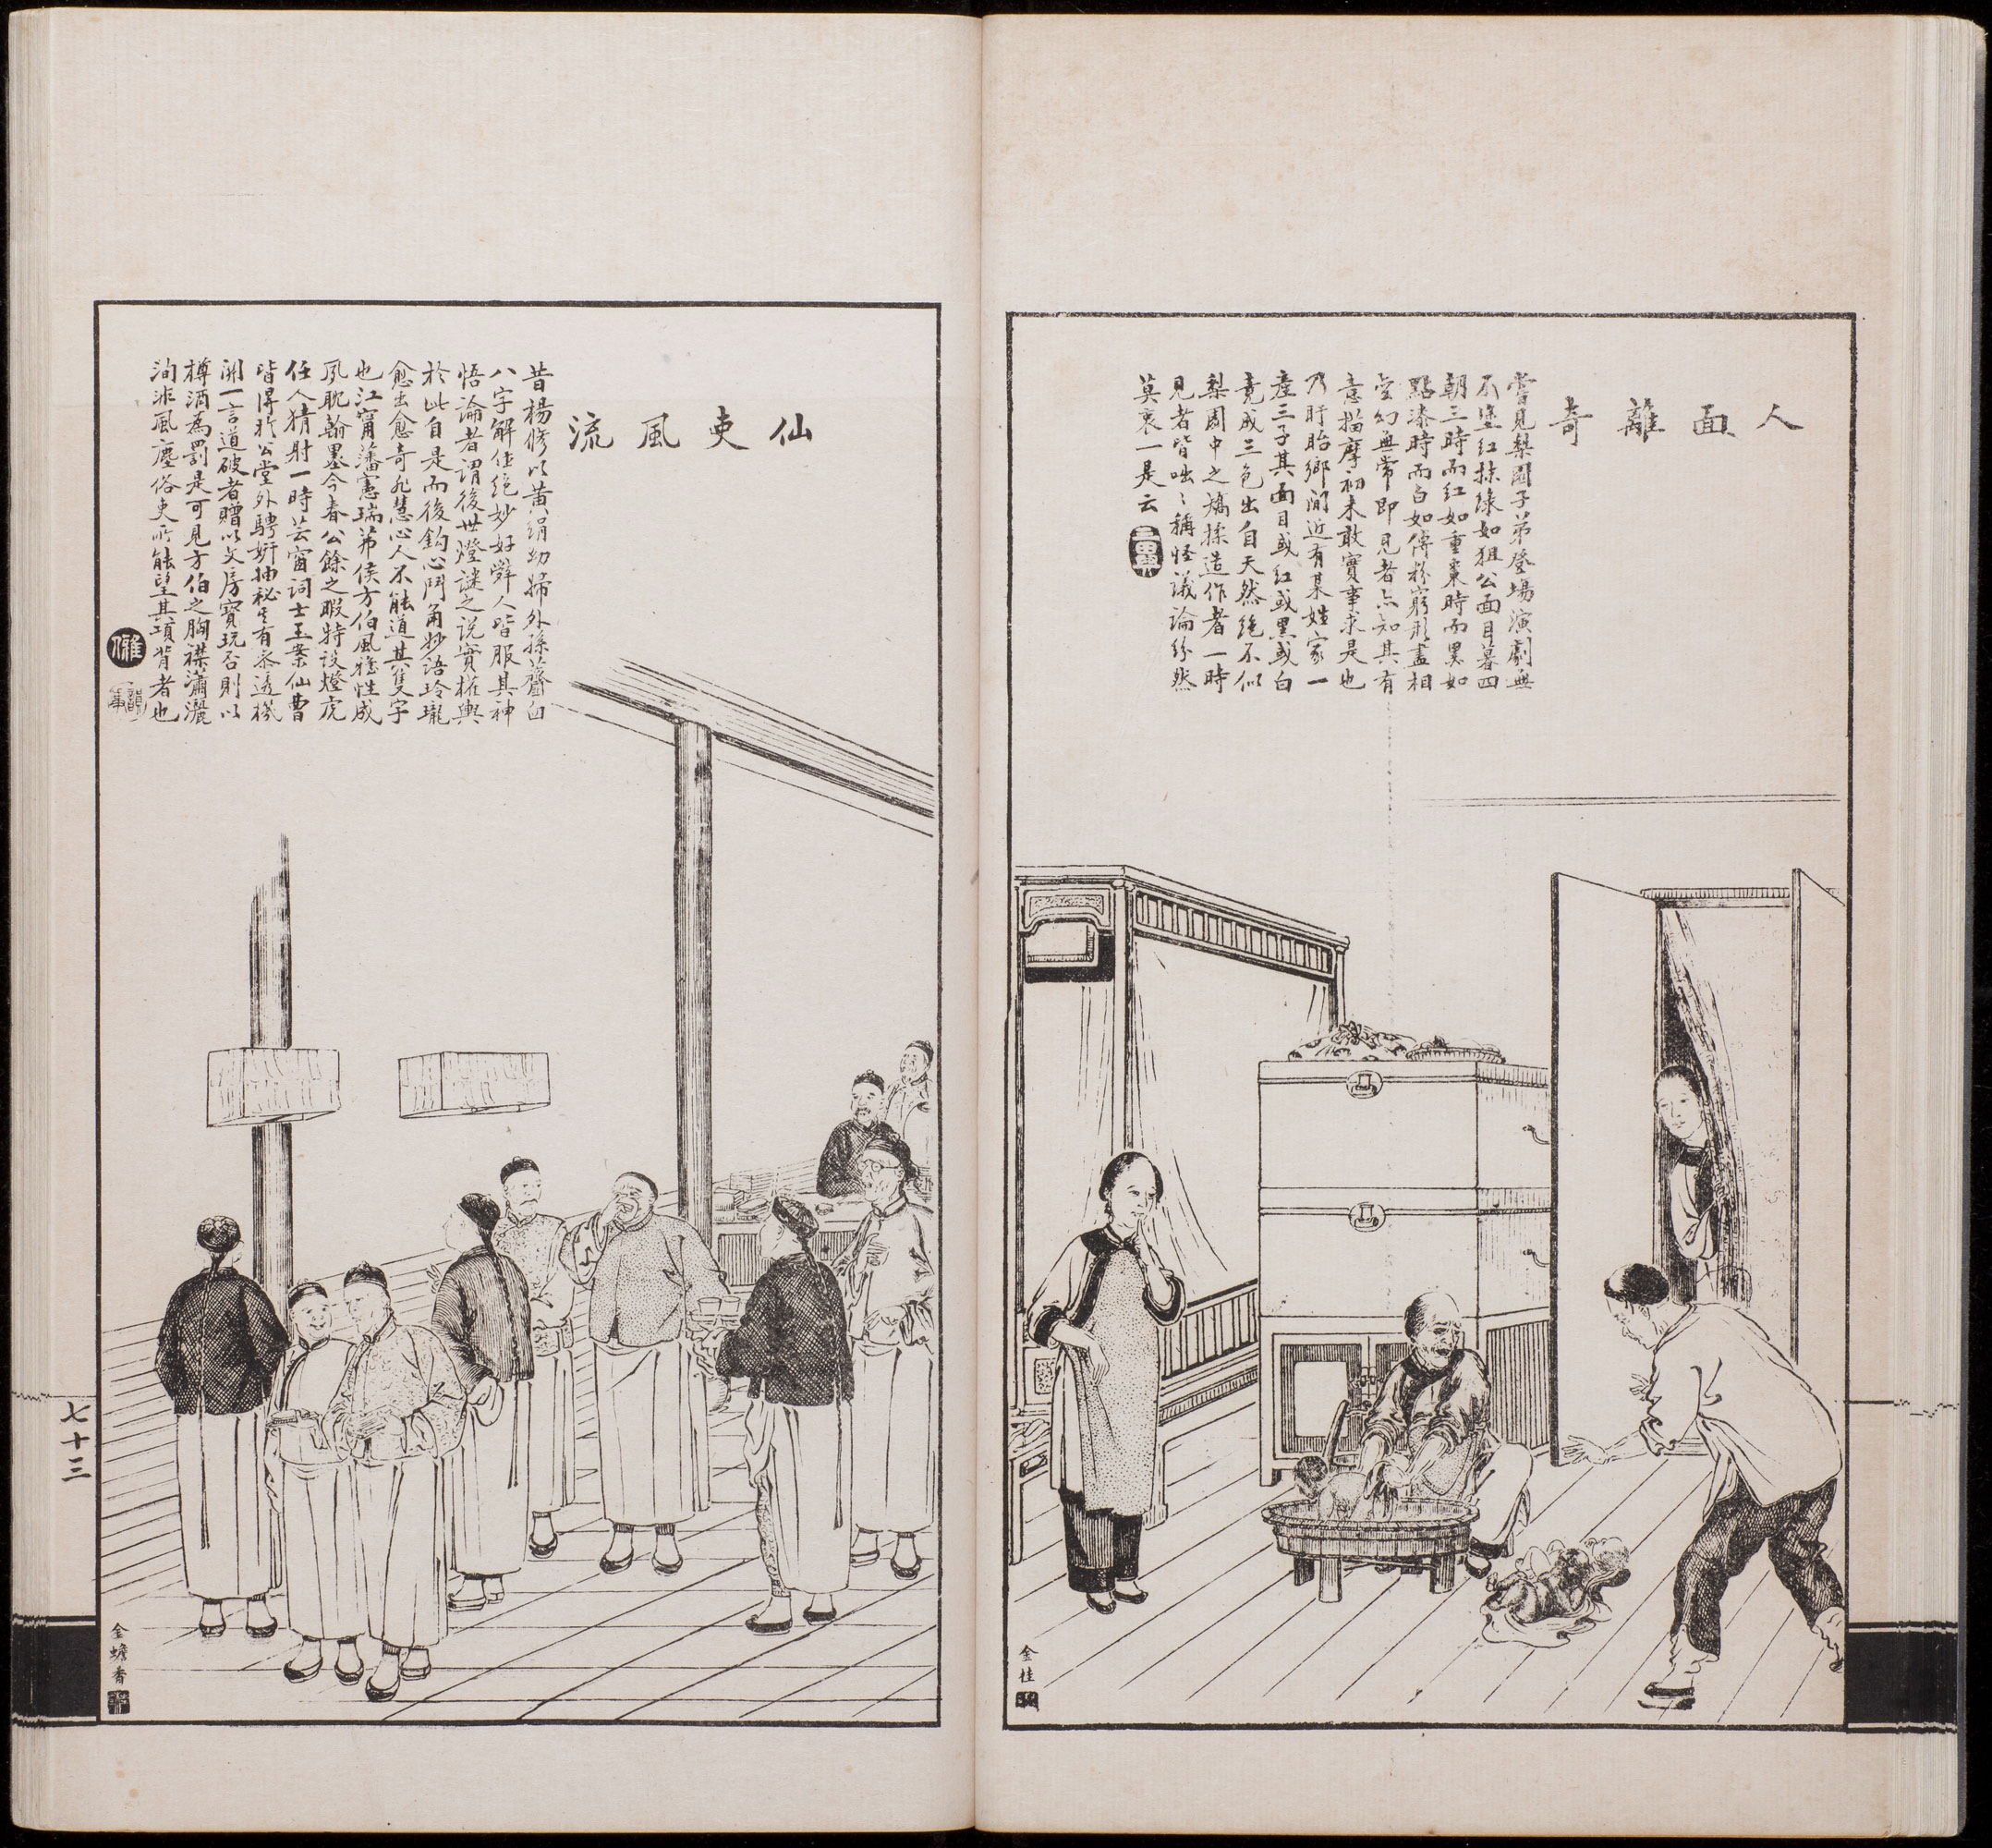 人面離奇
嘗見梨園子弟登場演劇無
不塗紅抹綠如狙公面目暮四
朝三時而紅如重棗時而黑如
點漆時而白如傅粉窮形盡相
變幻無常即見者亦知其有
意描摩初未敢實事求是也
乃盱眙鄉間近有某姓家一
產三子其面目或紅或黑或白
竟成三色出自天然絕不似
梨園中之矯揉造作者一時
見者皆咄〻稱怪議論紛然
莫衷一是云
金桂
仙吏風流
昔楊修以黃絹幼婦外孫齏臼
八字解作絕妙好辭人皆服其神
悟論者謂後世燈謎之說實權輿
於此自是而後鈎心鬥角妙語玲瓏
愈出愈奇非慧心人不能道其隻字
也江甯藩憲瑞茀侯方伯風雅性成
夙耽翰墨今春公餘之暇特設燈虎
任人猜射一時芸窗詞士玉案仙曹
皆得於公堂外騁妍抽秘其有參透機
關一言道破者贈以文房寶玩否則以
樽酒為罰是可見方伯之胸襟瀟灑
洵非風塵俗吏所能望其項背者也
金蟾香
七十三